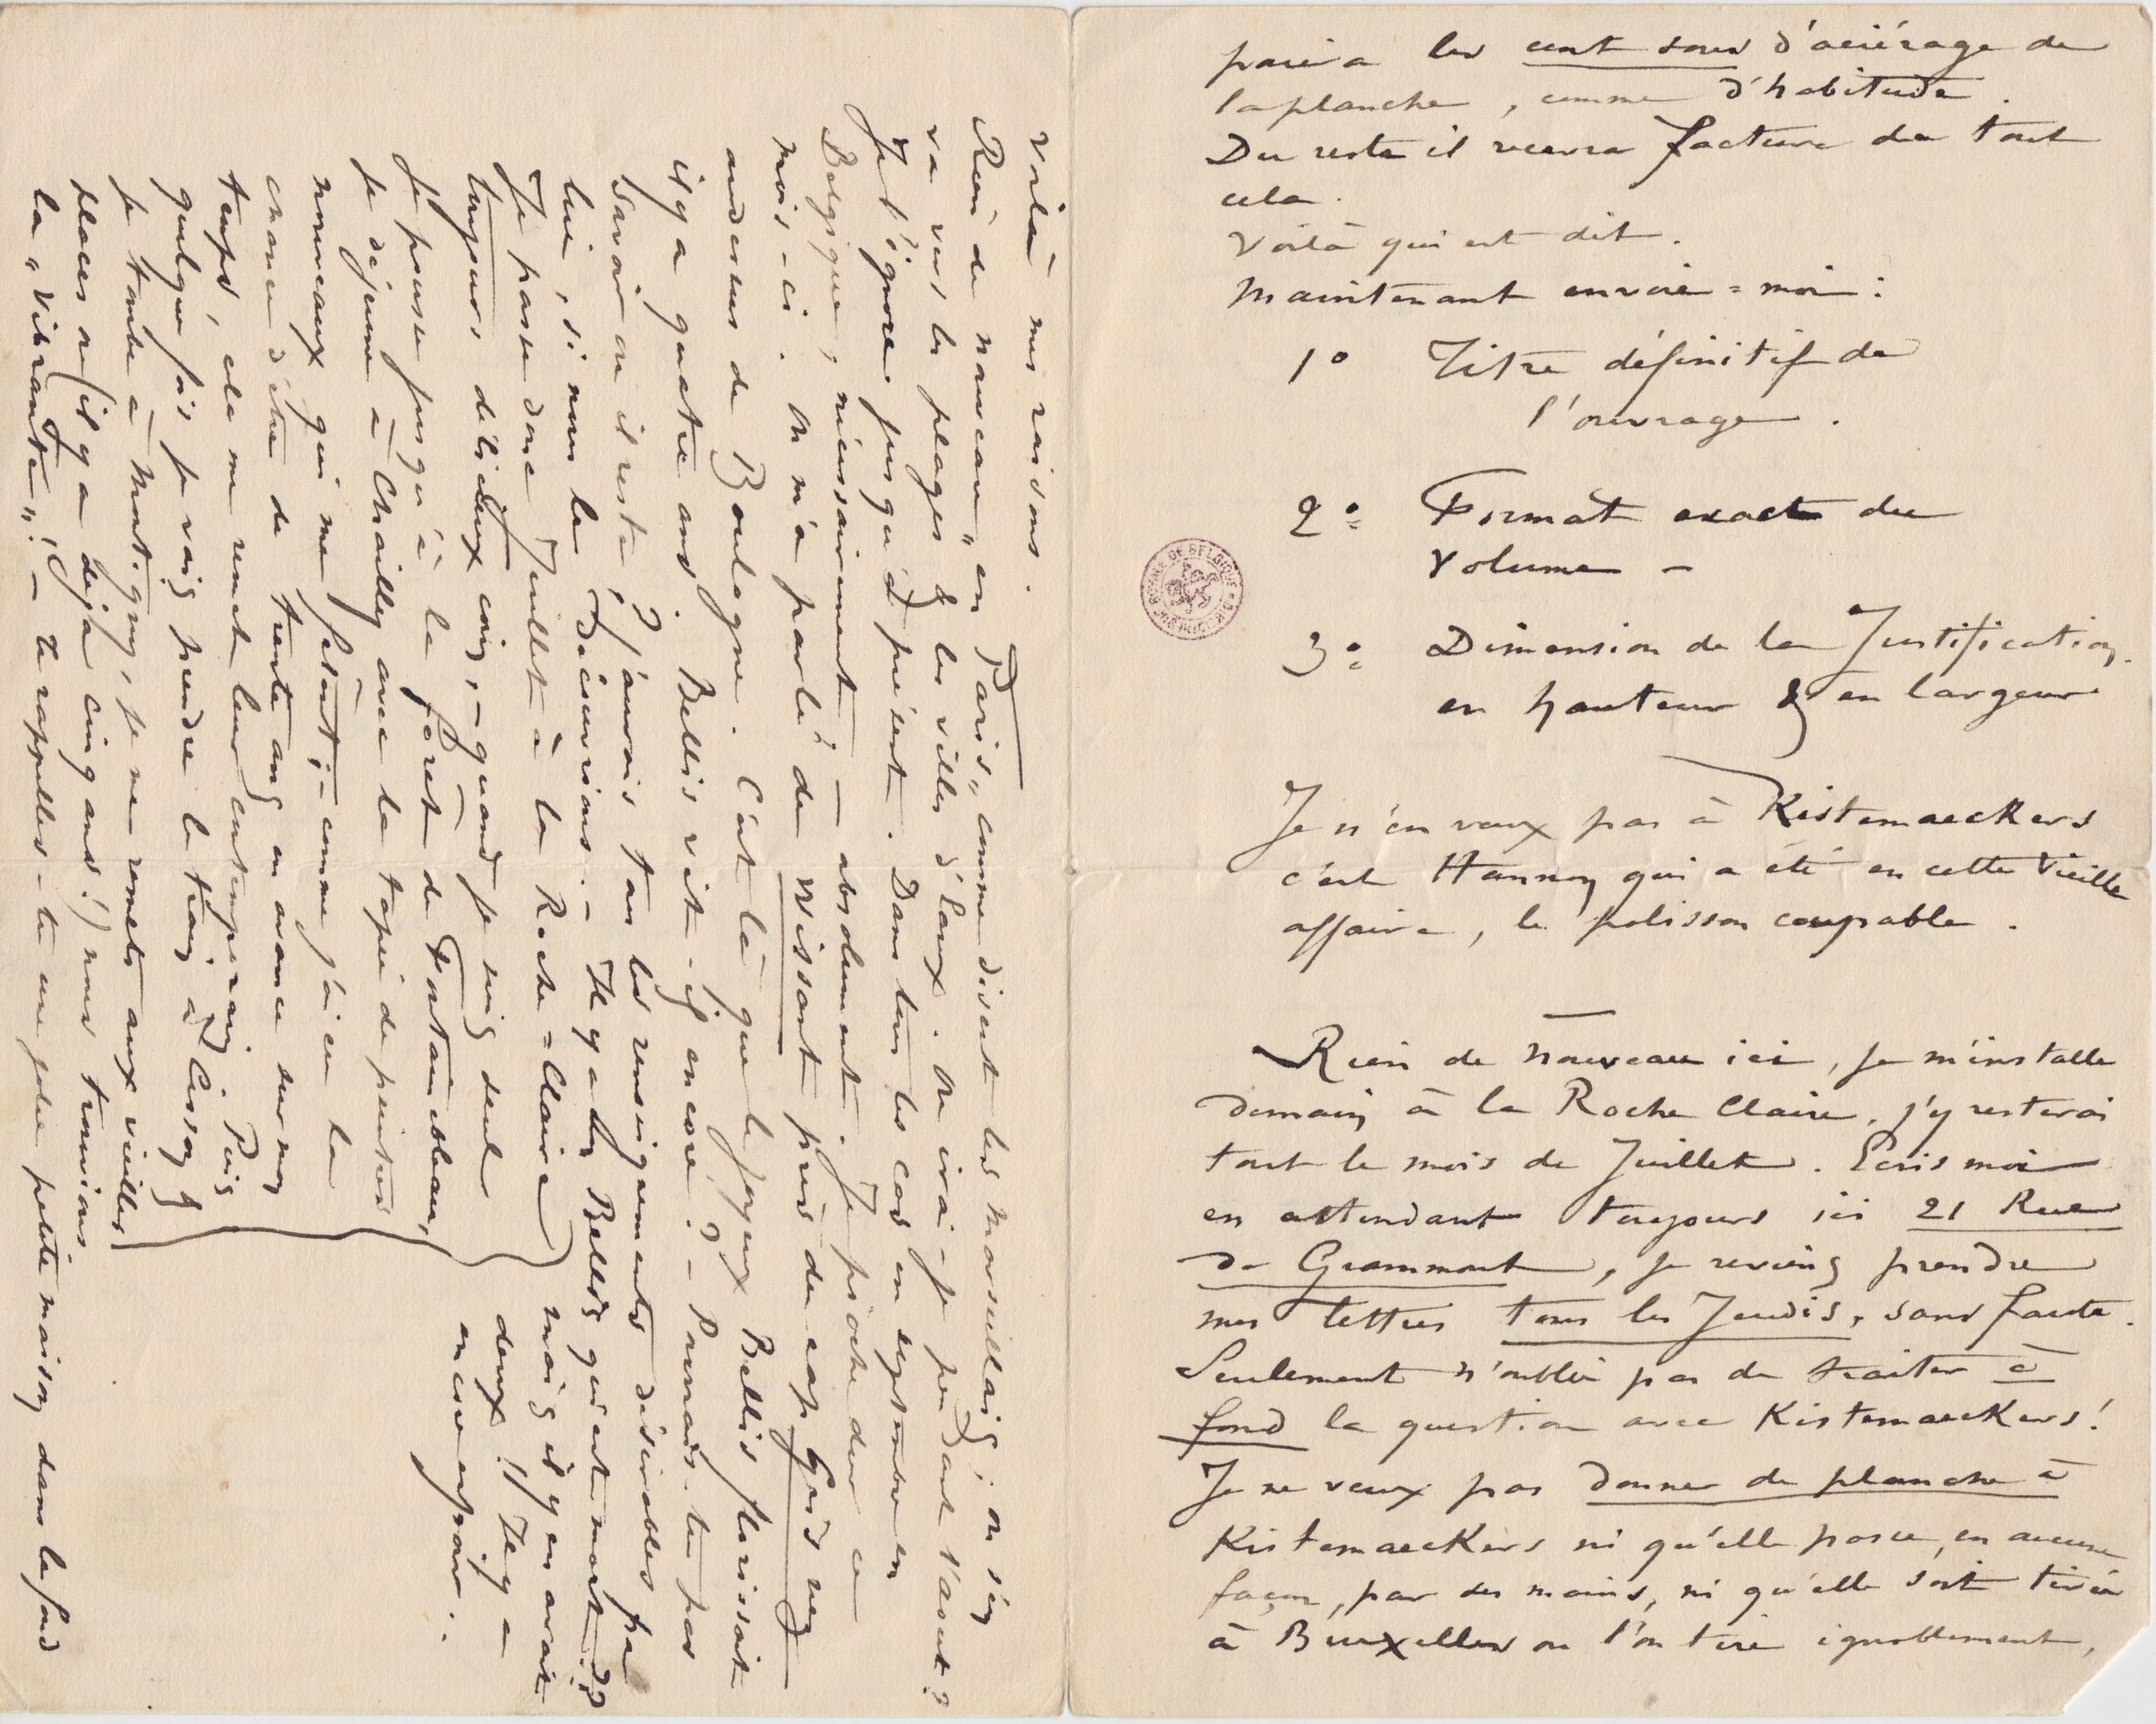 paiera les cent sous d'aciérage de
la planche, comme d'habitude.
Du reste il recevra facture de tout
cela.
Voilà qui est dit.
Maintenant envoie=moi :
1° Titre définitif de
l'ouvrage.
2° Format exact du
Volume –
3° Dimension de la Justification,
en hauteur & en largeur
Je n'en veux pas à Kistemaeckers
c'est Hannon qui a été en cette Vieille
affaire, le polisson coupable.
Rien de nouveau ici, Je m'installe
demain à la Roche Claire, j'y resterai
tout le mois de Juillet. Ecris moi
en attendant toujours ici 21 Rue
de Grammont, je reviens prendre
mes lettres tous les Jeudis, sans faute.
Seulement n'oublie pas de traiter à
fond la question avec Kistemaeckers!
Je ne veux pas donner de planche à
Kistemaeckers ni qu'elle passe, en aucune
façon, par des mains, ni qu'elle soit tirée
à Bruxelles ou l'on tire ignoblement,
Voilà mes raisons.
Rien de nouveau „en Paris„ comme disent les Marseillais; on s'en
va vers les plages & les villes d'Eaux. Où irai-je pendant l'aout?
Je l'ignore jusqu'à présent. Dans tous les cas en septembre en
Belgique, nécessairement – absolument. Je pioche dur ce
mois-ci. On m'a parlé de Wissant près du cap Gris nez
au dessus de Boulogne. C'est là que le joyeux Bellis florissait
il y a quatre ans. Bellis vit-il encore? – Pourrais-tu pas
savoir ou il reste? J'aurais tous les renseignements désirables par
lui, si nous le découvrions. – Il y a un Bellis qui est mort??
mais il y en avait
deux! Il y a
encore espoir.
Je passe donc Juillet à la Roche=Claire
toujours délicieux coin, – quand je suis seul
je pousse jusqu'à la forêt de Fontainebleau,
je déjeune à Chailly avec la tapée de peintres
nouveaux qui me fêtent; – comme j'ai eu la
chance d'être de trente ans en avance sur mon
temps, cela me rend leur contemporain. Puis
quelque fois je vais prendre le train à Cesson &
je tombe à Montigny, je me remets aux vieilles
places où (il y a déjà cinq ans!) nous trouvions
la „Vibrante„! – Te rappelles-tu une jolie petite maison dans le fond